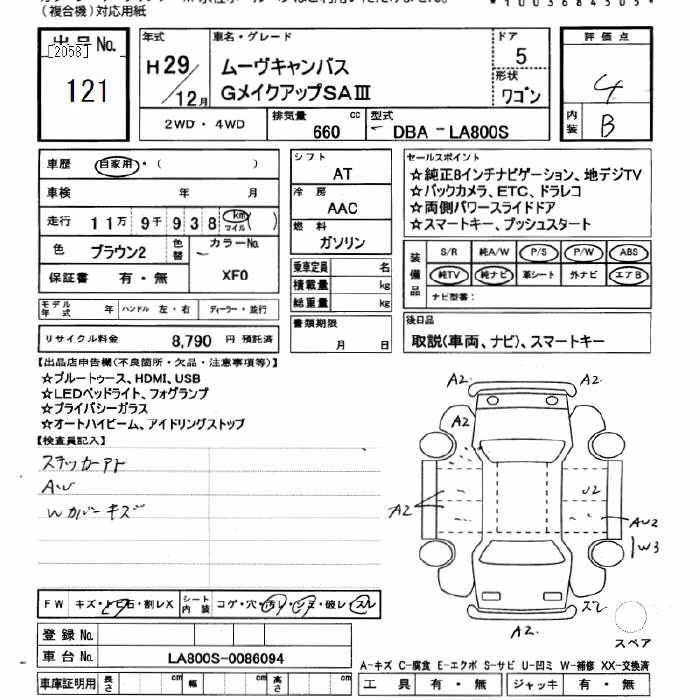 (複合機)対応用紙
*1003684505*
出品No.
[2058]
121
年式
H29/12月
車名・グレード
ムーヴキャンバス
GメイクアップSAⅢ
ドア
5
形状
ワゴン
評価点
4
内装
B
2WD・4WD
排気量 660 cc
型式 DBA - LA800S
車歴 自家用・( )
車検 年 月
走行 11万9千938 km マイル ( )
色 ブラウン2
色替
カラーNo. XF0
保証書 有・無
シフト
AT
冷房
AAC
燃料
ガソリン
乗車定員 名
積載量 kg
総重量 kg
セールスポイント
☆純正8インチナビゲーション、地デジTV
☆バックカメラ、ETC、ドラレコ
☆両側パワースライドドア
☆スマートキー、プッシュスタート
装備品
S/R 純A/W P/S P/W ABS
純TV 純ナビ 革シート 外ナビ エアB
ナビ型番:
モデル年式 年 ハンドル 左・右 ディーラー・並行
リサイクル料金 8,790 円 預託済
書類期限
月 日
後日品
取説(車両、ナビ)、スマートキー
【出品店申告欄(不良箇所・欠品・注意事項等)】
☆ブルートゥース、HDMI、USB
☆LEDヘッドライト、フォグランプ
☆プライバシーガラス
☆オートハイビーム、アイドリングストップ
【検査員記入】
ステッカーアト
AW
Wカバーキズ
A2 A2
A2
A2
U2
AU2
W3
ズレ
A2
スペア
FW キズ・トビ石・割レX シート内装 コゲ・穴・汚レ・シミ・破レ・スレ
登録No.
車台No. LA800S-0086094
車庫証明用 長さ cm 幅 cm 高さ cm
A-キズ C-腐食 E-エクボ S-サビ U-凹ミ W-補修 XX-交換済
工具 有・無 ジャッキ 有・無